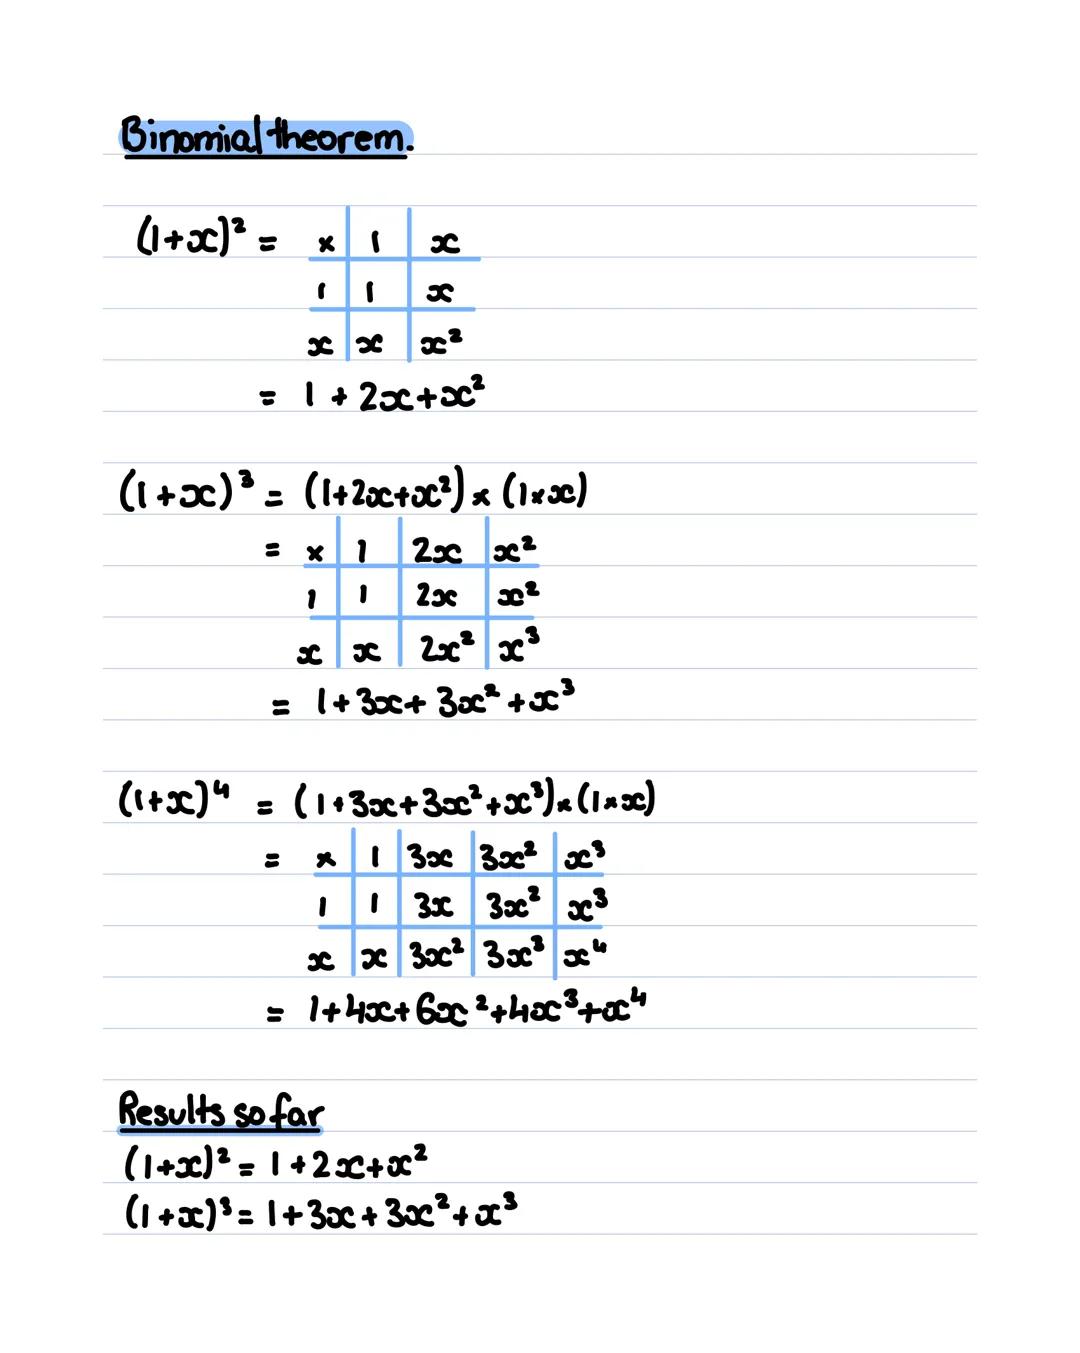 Binomial theorem.
(1+x)² = × 1 x
1 1 x
x x x²
= 1 + 2x+x²
(1+x)³ = (1+2x+x²) × (1×x)
= × 1 2x x²
1 1 2x x²
x x 2x² x³
= 1+3x+ 3x² +x³
(1+x)⁴ = (1+3x+3x²+x³)×(1×x)
= × 1 3x 3x² x³
1 1 3x 3x² x³
x x 3x² 3x³ x⁴
= 1+4x+6x²+4x³+x⁴
Results so far
(1+x)² = 1+2x+x²
(1+x)³ = 1+3x+3x²+x³